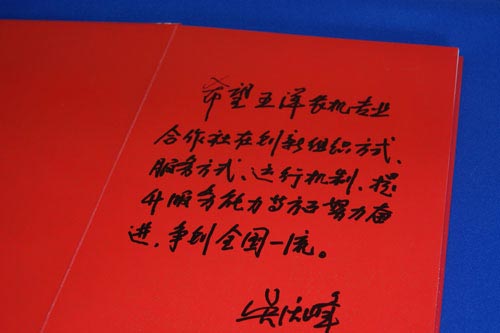 希望五洋农机专业
合作社在创新组织方式、
服务方式、运行机制、提
升服务能力等方面努力奋
进，争创全国一流。
吴庆峰